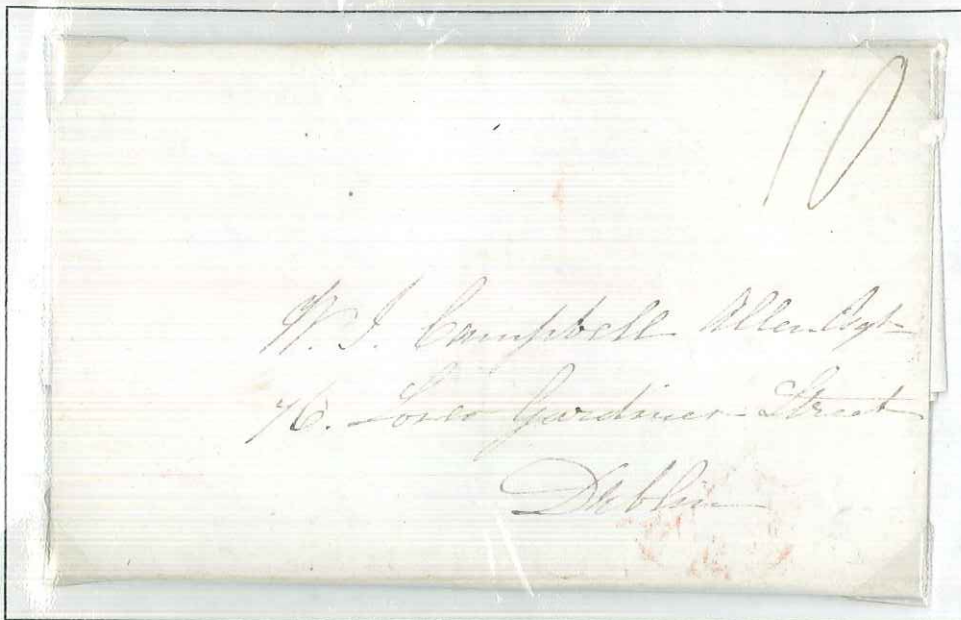 10
W. J. Campbell Allen Esqr
76. Lower Gardiner Street
Dublin